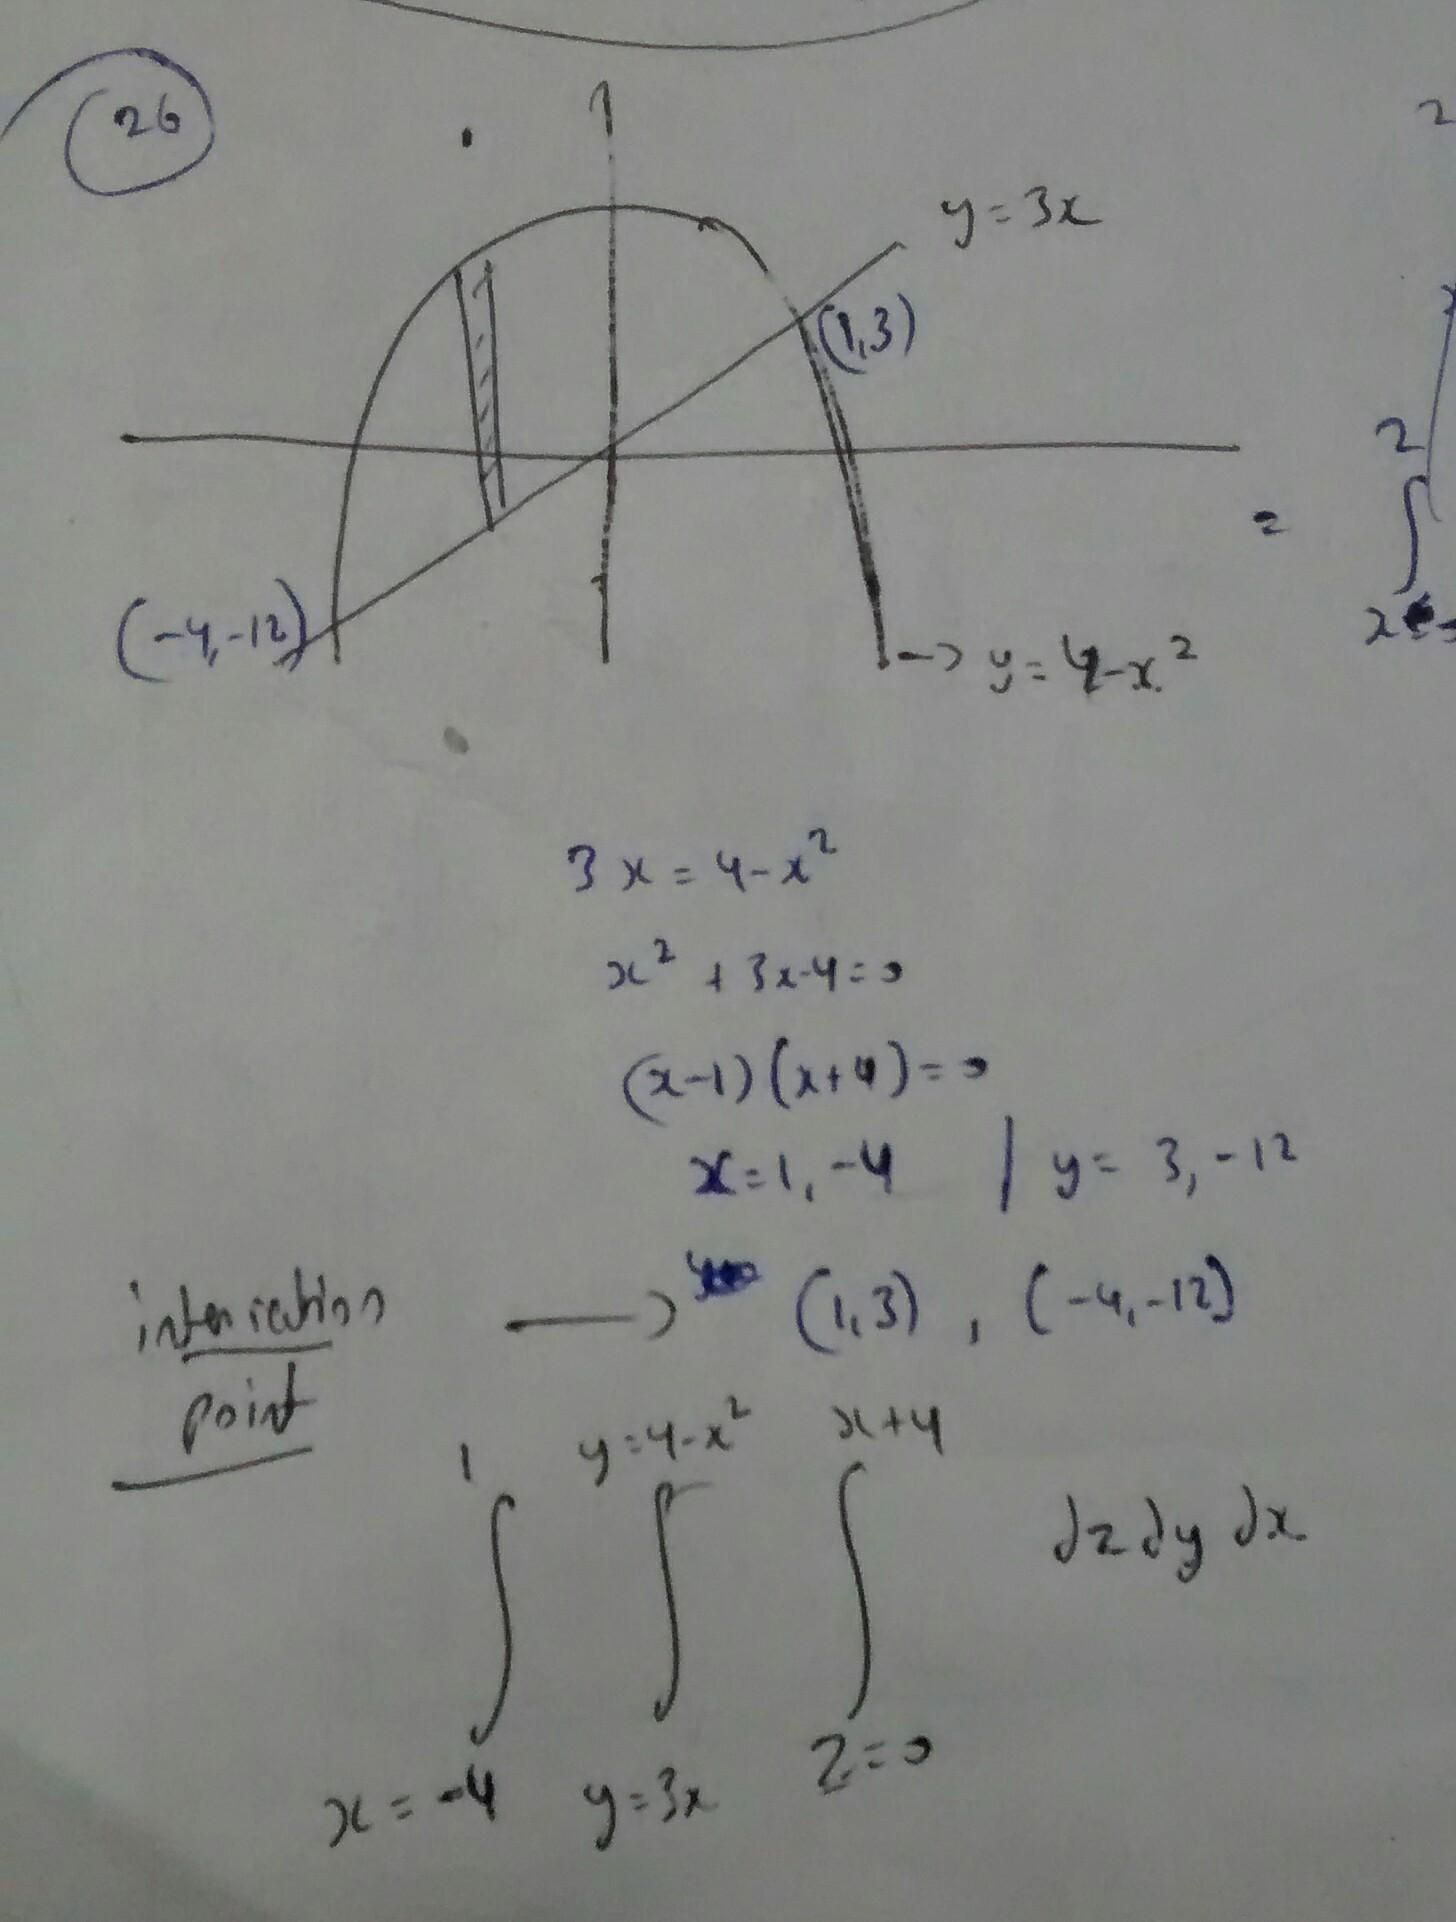 26
y=3x
(1,3)
(-4,-12)
-> y=4-x²
=
2
2
∫
3x = 4-x²
x² + 3x-4=0
(x-1)(x+4)=0
x=1,-4 | y= 3,-12
intersection → (1,3) , (-4,-12)
point
1 y=4-x² x+4
∫ ∫ ∫ dz dy dx
x=-4 y=3x z=0